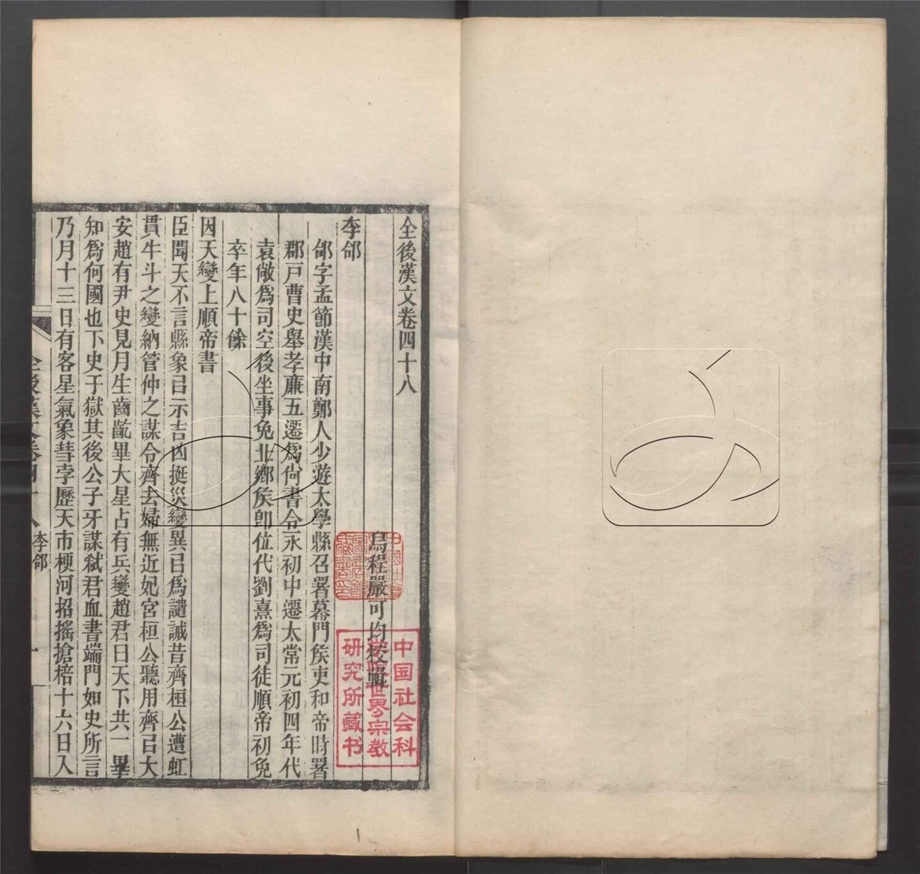 全後漢文卷四十八
烏程嚴可均校輯
李郃
郃字孟節漢中南鄭人少遊太學縣召署幕門侯吏和帝時署
郡戸曹史舉孝廉五遷爲尙書令永初中遷太常元初四年代
袁敞爲司空後坐事免北鄉侯卽位代劉熹爲司徒順帝初免
卒年八十餘
因天變上順帝書
臣聞天不言縣象㠯示吉凶挺災變異㠯爲譴誡昔齊桓公遭虹
貫牛斗之變納管仲之謀令齊去婦無近妃宮桓公聽用齊㠯大
安趙有尹史見月生齒齕畢大星占有兵變趙君曰天下共一畢
知爲何國也下史于獄其後公子牙謀弒君血書端門如史所言
乃月十三日有客星氣象彗孛歷天市梗河招搖搶棓十六日入
全後漢文卷四十八
李郃
一
中国社会科
学院世界宗教
研究所藏书